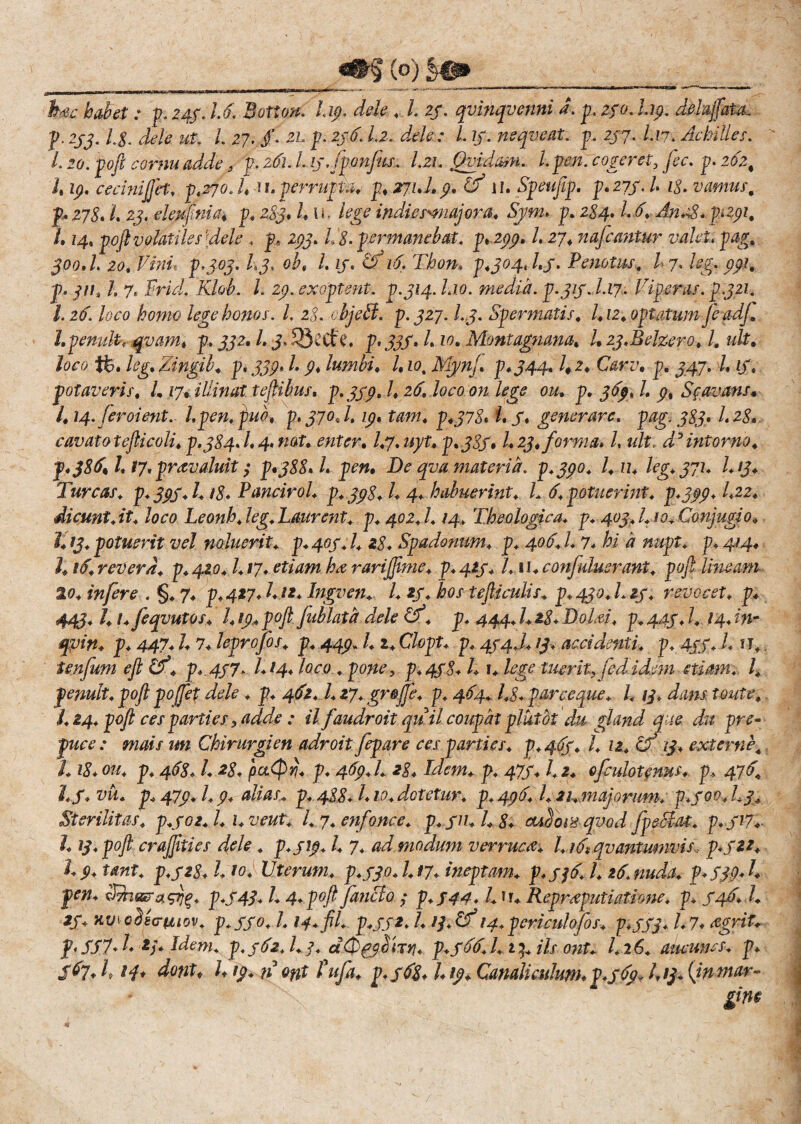 (o)
hæc habet : p. 245. l.6. Botton. l.19. dele . l. 25. qvinqvenni â. p. 250. l.19. delassata.
p. 253. l.8. dele ut. l. 27. §. 21. p. 256. l.2. dele: l. 15. neqveat. p. 257. l.17. Achilles.
l. 20. post cornu adde , p. 261. l. 15. sponsus. l.21. Qvidam. l. pen. cogeret, sec. p. 262.
l. 19. cecinisset. p.270. l. 11. perrupta. p. 271.l.9. & 11. Speusip. p.275. l. 18. vamus.
p. 278. l. 23. eleusinia. p. 283. l. 11. lege indies major a. Sym. p. 284. l.6. p.291.
l. 14. post volatiles dele . p. 293. l.8. permanebat. p.299. l. 27. nascantur valet. pag.
300.l. 20. Vini. p.303. l.3. ob. l. 15. & 16. Thon. p.304. l.5. Penotus. l. 7. leg. 991.
p. 311. l. 7. Frid. Klob. l. 29. exoptent. p.314. l.10. media. p.315.l.17. Viperas. p.321.
l. 26. loco homo lege honos. l. 28. object. p. 327. l.3. Spermatis. l.12. optatum se adf.
l. penult. qvam. p. 332. l. 3. Becke. p. 335. l. 10. Montagnana. l. 23.Belzero. l. ult.
loco ℔. leg. Zingib. p. 339. l. 9. lumbi. l.10. Mynf. p.344. l.2. Carv. p. 347. l. 15.
potaveris. l. 17. illinat testibus. p.359. l. 26. loco on lege ou. p. 369. l. 9. Sçavans.
l. 14. feroient. l.pen. puo. p. 370. l. 19. tam. p.378. l. 5. generare. pag. 383. l. 28.
cavato testicoli. p.384. l. 4. not. enter. l.7. uyt. p.385. l. 23. forma. l. ult. d'intorno.
p.386. l. 17. prævaluit ; p.388. l. pen. De qva materia. p.390. l. 11. leg. 371. l.13.
Turcas. p. 395. l. 18. Pancirol. p. 398. l. 4. habuerint. l. 6. potuerint. p.399. l.22.
dicunt.it. loco Leonh.leg.Laurent. p. 402.l. 14. Theologica. p. 403. l.10. Conjugio.
l.13. potuerit vel noluerit. p.405. l. 28. Spadonum. p. 406. l. 7. hi à nupt. p. 414.
l. 16. reverà. p. 420. l. 17. etiam hæ rarissime. p. 425. l. 11. confuluerant. post lineam
20. infere . §. 7. p.427. l.12. Ingven. l. 25. hos testiculis. p.430. l. 25. revocet. p.
443. l. 1. seqvutos. l. 19. post sublatâ dele &. p. 444. l.28. Dolæi. p. 445. l. 14. in-
qvin. p. 447. l. 7. leprosos. p. 449. l. 2. Clopt. p. 454.l. 13. accidenti. p. 455. l. 11.
tensum est &. p. 457. l.14. loco . pone, p.458. l. 1. lege tuerit, sed idem etiam. l.
penult. post posset dele . p. 462. l. 27. grosse. p. 464. l.8. parceque. l. 13. dans toute.
l. 24. post ces parties, adde : il faudroit qu'il coupât plûtôt du gland que du pre-
puce : mais un Chirurgien adroit separe ces parties. p.465. l. 12. & 13. externè.
l. 18. ou. p. 468. l. 28. ραφή. p. 469. l. 28. Idem. p. 475. l. 2. osculotenus. p. 476.
l.5. vû. p. 479. l. 9. alias. p. 488. l. 10. dotetur. p. 496. l. 21. majorum. p.500. l.3.
Sterilitas. p.502. l. 1. veut. l. 7. enfonce. p. 511. l. 8. qvod spectat. p.517.
l. 13. post crassities dele . p. 519. l. 7. ad modum verrucæ. l.16. qvantumvis. p.522.
l. 9. tant. p.528. l. 10. Uterum. p.530. l.17. ineptam. p.536. l. 26. nuda. p. 539. l.
pen. p.543. l. 4. post sancto ; p.544. l. 11. Repræputiatione. p. 546. l.
25. p. 550. l. 14. fil. p.552. l. 13. & 14. periculosos. p.553. l. 7. ægrit.
p. 557. l. 23. Idem. p. 562. l. 3. p.566. l. 23. ils ont. l.26. aucunes. p.
567. l. 14. dont. l. 19. n' ont l'usa. p. 568. l. 19. Canaliculum. p.569. l. 13. (in mar-
gine